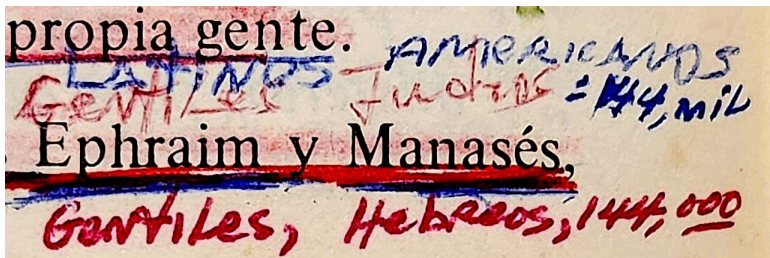 propia gente.
LATINOS AMERICANOS
Gentiles Judios = 144, mil
Ephraim y Manasés,
Gentiles, Hebreos, 144,000